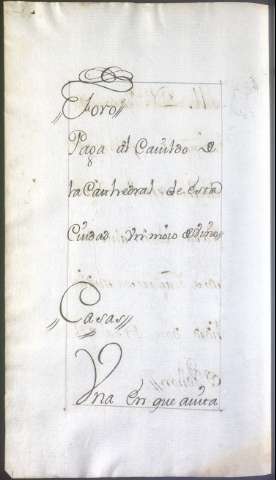 Foro
Paga al Cavildo de
la Cathedral de esta
Ciudad Un moio de
Casas
Una En que avita